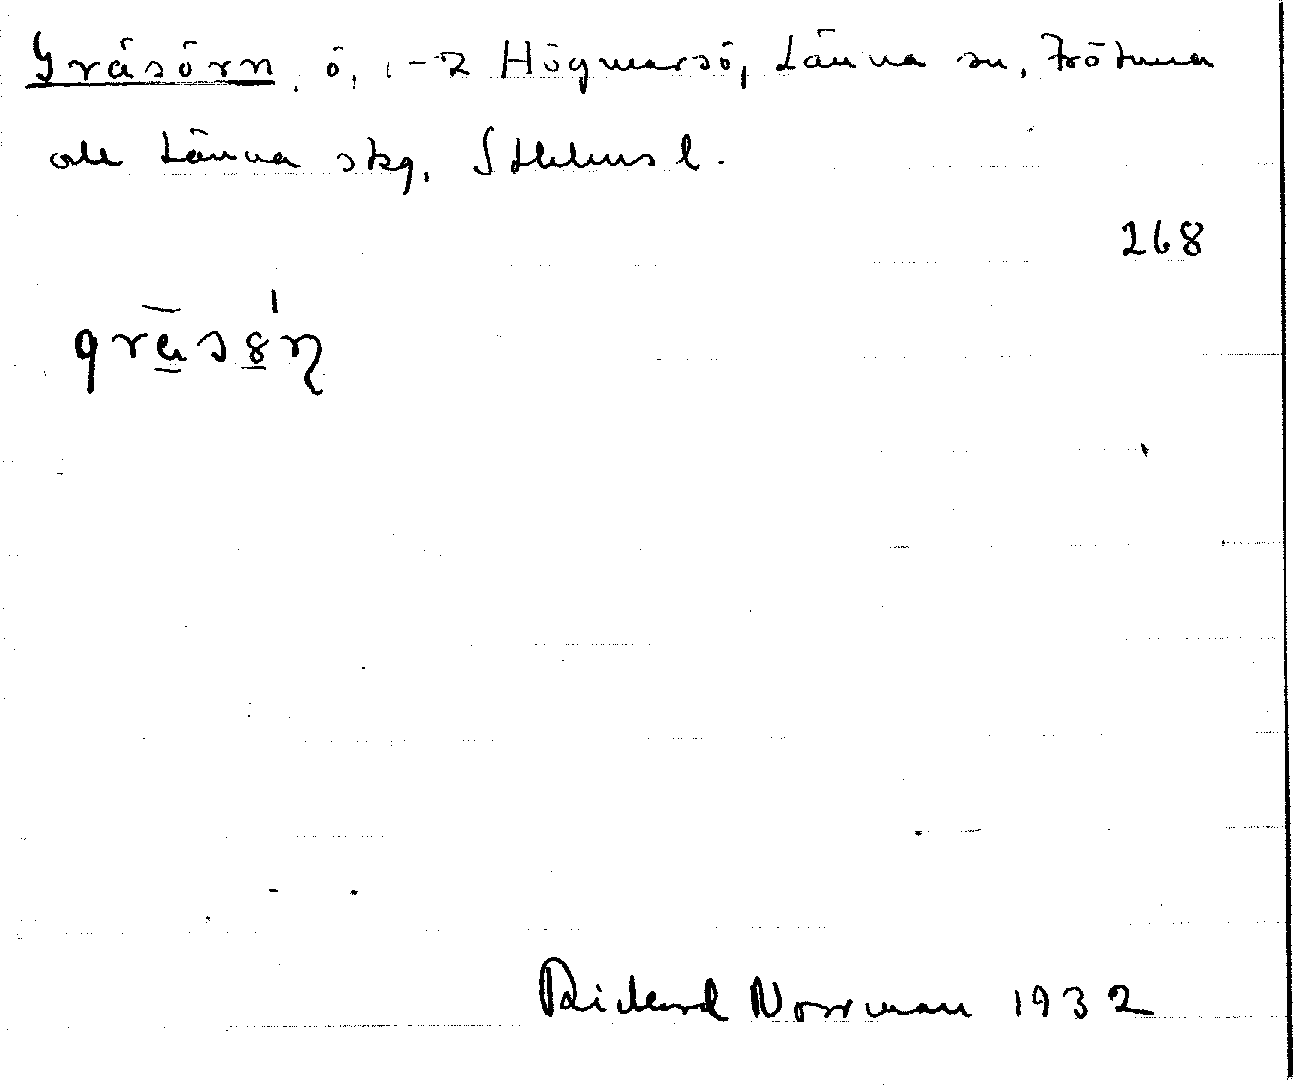 Gräsörn, ö, 1-2 Högmarsö, Länna sn, Frötuna
och Länna skg, Sthlms l.
268
Rickard Norrman 1932